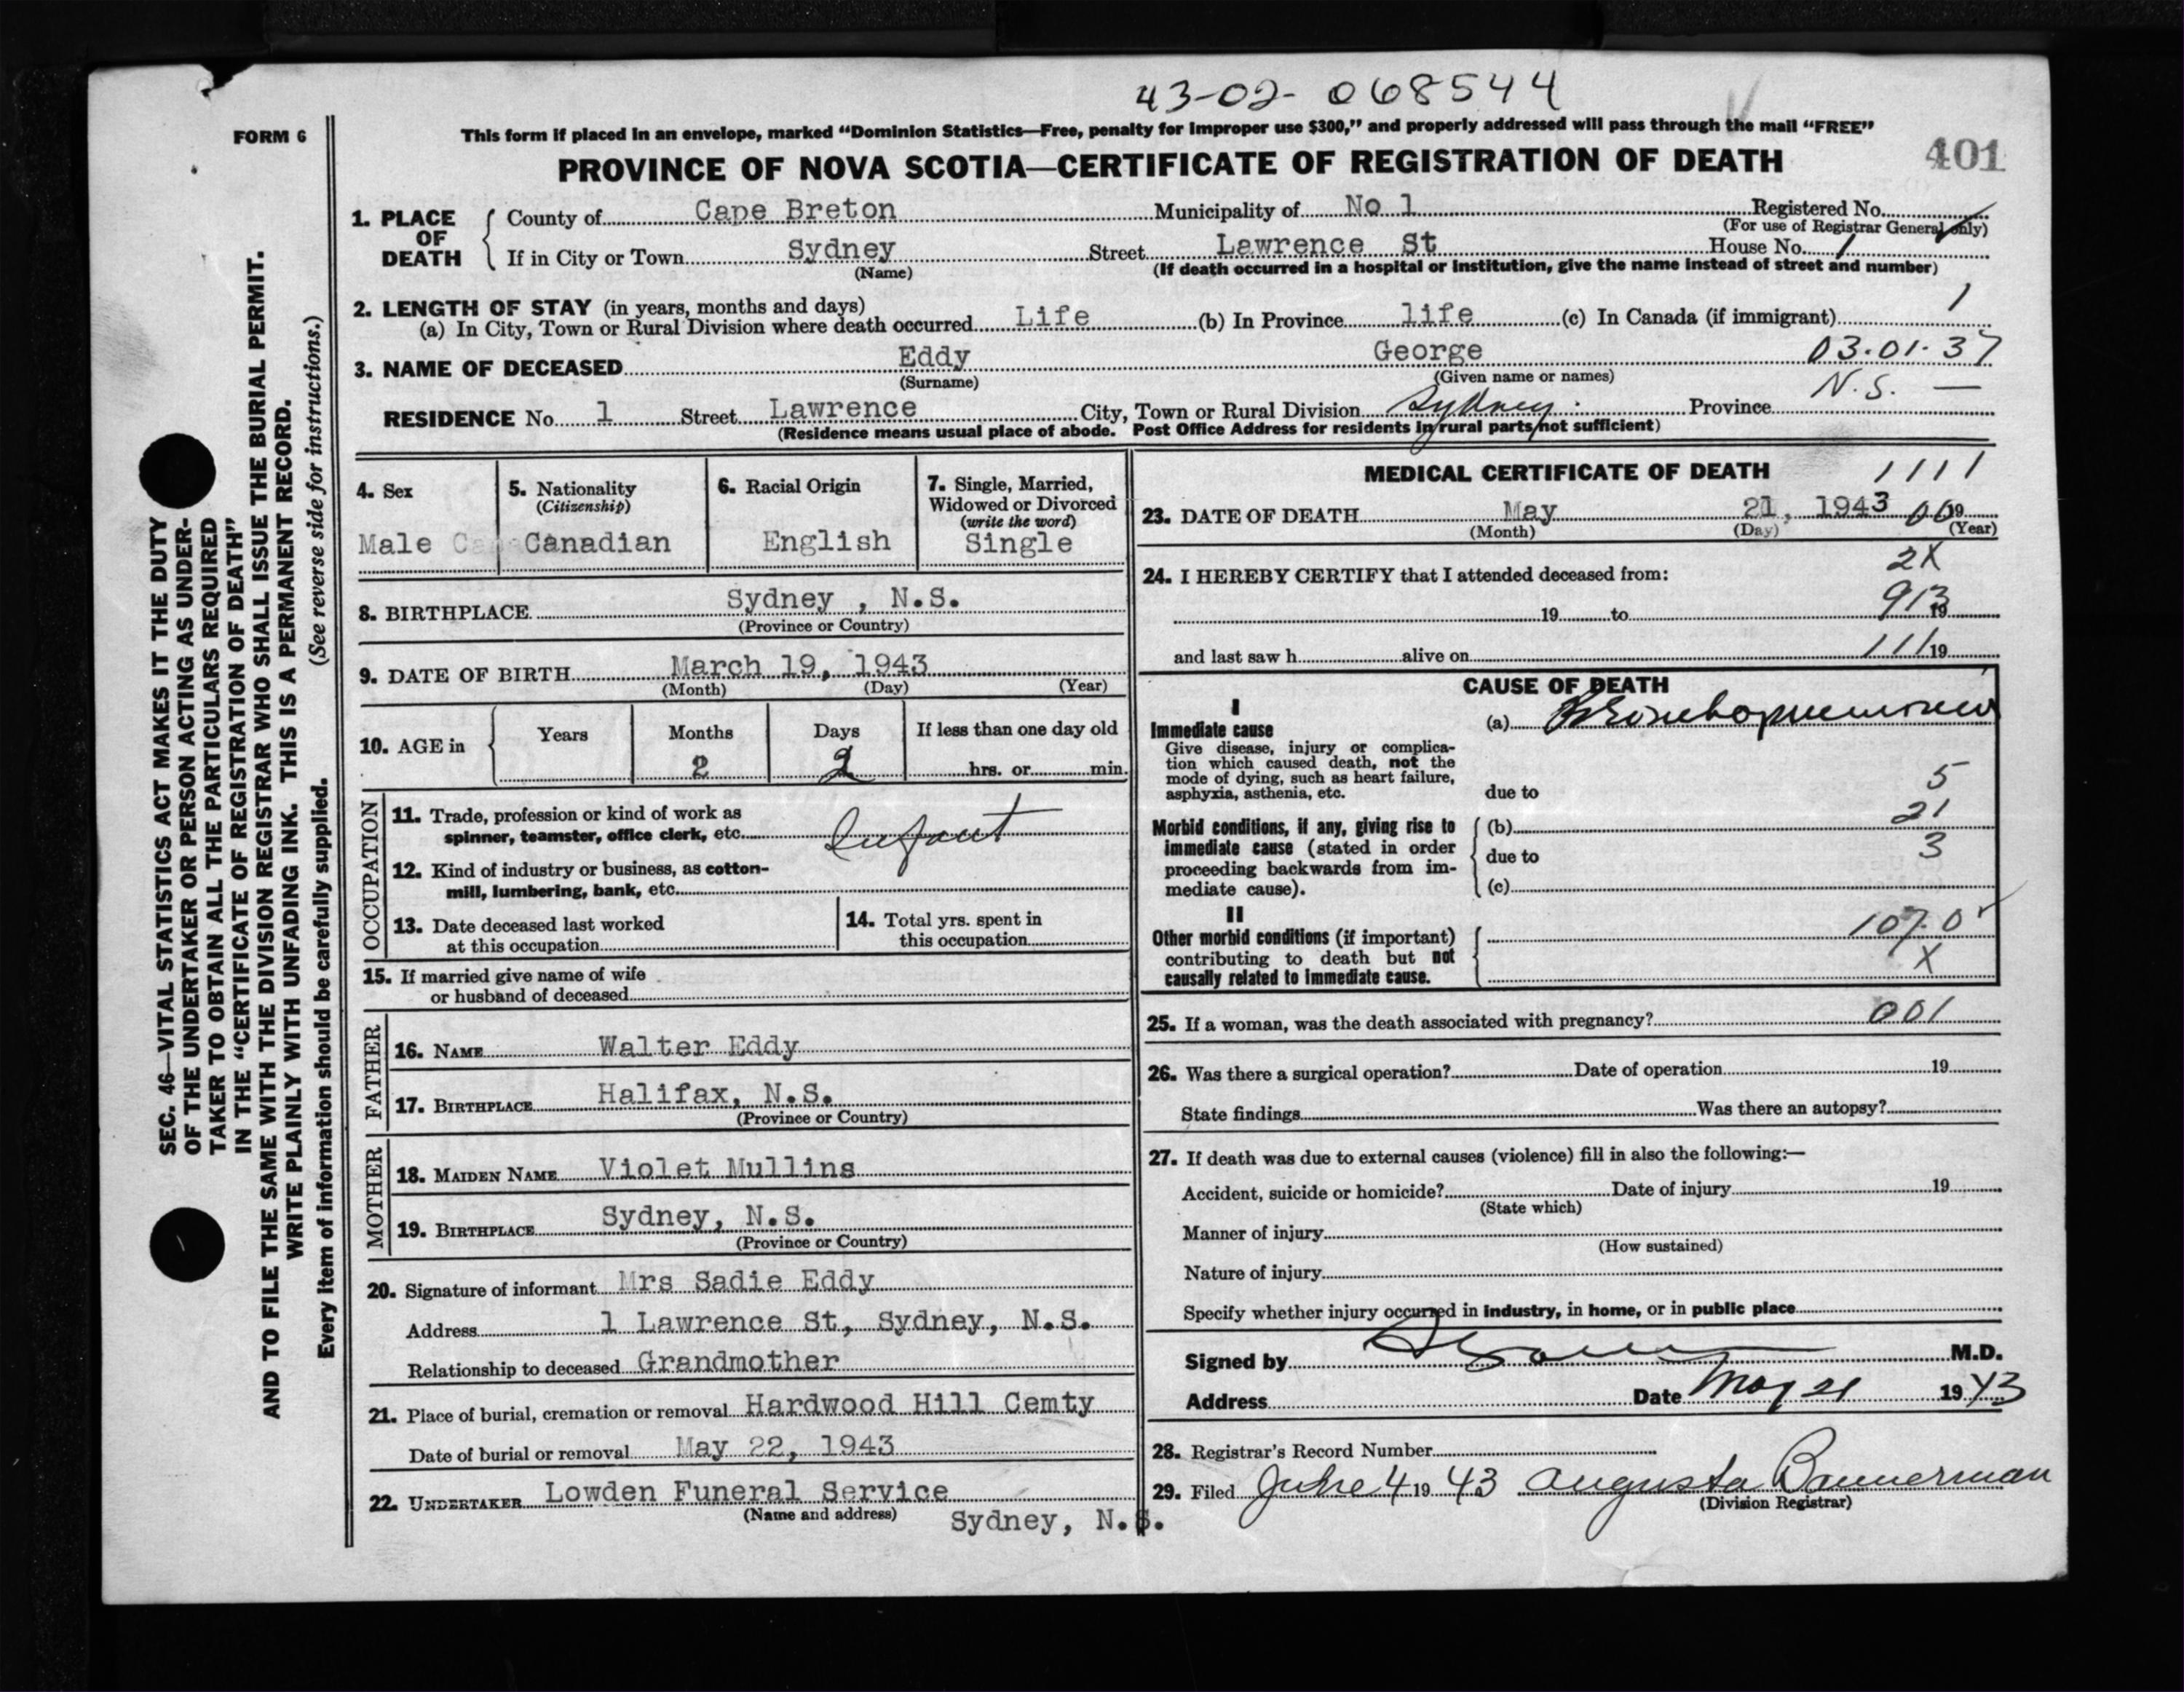 43-02-068544
FORM 6
This form if placed in an envelope, marked “Dominion Statistics—Free, penalty for improper use $300,” and properly addressed will pass through the mail “FREE”
PROVINCE OF NOVA SCOTIA—CERTIFICATE OF REGISTRATION OF DEATH
401
SEC. 46—VITAL STATISTICS ACT MAKES IT THE DUTY
OF THE UNDERTAKER OR PERSON ACTING AS UNDER-
TAKER TO OBTAIN ALL THE PARTICULARS REQUIRED
IN THE “CERTIFICATE OF REGISTRATION OF DEATH”
AND TO FILE THE SAME WITH THE DIVISION REGISTRAR WHO SHALL ISSUE THE BURIAL PERMIT.
WRITE PLAINLY WITH UNFADING INK. THIS IS A PERMANENT RECORD.
Every item of information should be carefully supplied. (See reverse side for instructions.)
1. PLACE OF DEATH County of Cape Breton Municipality of No 1 Registered No.
(For use of Registrar General only)
If in City or Town Sydney Street Lawrence St House No. 1
(Name) (If death occurred in a hospital or institution, give the name instead of street and number)
2. LENGTH OF STAY (in years, months and days) 1
(a) In City, Town or Rural Division where death occurred Life (b) In Province life (c) In Canada (if immigrant)
3. NAME OF DECEASED Eddy George 03.01.37
(Surname) (Given name or names)
N.S. —
RESIDENCE No. 1 Street Lawrence City, Town or Rural Division Sydney Province
(Residence means usual place of abode. Post Office Address for residents in rural parts not sufficient)
4. Sex 5. Nationality (Citizenship) 6. Racial Origin 7. Single, Married, Widowed or Divorced (write the word)
Male Canadian English Single
8. BIRTHPLACE Sydney , N.S.
(Province or Country)
9. DATE OF BIRTH March 19, 1943
(Month) (Day) (Year)
10. AGE in Years Months Days If less than one day old
2 2 hrs. or min.
OCCUPATION
11. Trade, profession or kind of work as
spinner, teamster, office clerk, etc. Infant
12. Kind of industry or business, as cotton-
mill, lumbering, bank, etc.
13. Date deceased last worked
at this occupation
14. Total yrs. spent in
this occupation
15. If married give name of wife
or husband of deceased
FATHER
16. NAME Walter Eddy
17. BIRTHPLACE Halifax, N.S.
(Province or Country)
MOTHER
18. MAIDEN NAME Violet Mullins
19. BIRTHPLACE Sydney, N.S.
(Province or Country)
20. Signature of informant Mrs Sadie Eddy
Address 1 Lawrence St, Sydney, N.S.
Relationship to deceased Grandmother
21. Place of burial, cremation or removal Hardwood Hill Cemty
Date of burial or removal May 22, 1943
22. UNDERTAKER Lowden Funeral Service
(Name and address) Sydney, N.S.
MEDICAL CERTIFICATE OF DEATH 1111
23. DATE OF DEATH May 21, 1943 19
(Month) (Day) (Year)
2X
24. I HEREBY CERTIFY that I attended deceased from:
19 to 19 913
and last saw h alive on 19 111
CAUSE OF DEATH
I
Immediate cause
Give disease, injury or complica-
tion which caused death, not the
mode of dying, such as heart failure,
asphyxia, asthenia, etc.
(a) Bronchopneumonia
5
due to
21
Morbid conditions, if any, giving rise to
immediate cause (stated in order
proceeding backwards from im-
mediate cause).
(b)
due to 3
(c)
II
Other morbid conditions (if important)
contributing to death but not
causally related to immediate cause.
107.0
X
25. If a woman, was the death associated with pregnancy? 001
26. Was there a surgical operation? Date of operation 19
State findings Was there an autopsy?
27. If death was due to external causes (violence) fill in also the following:—
Accident, suicide or homicide? Date of injury 19
(State which)
Manner of injury
(How sustained)
Nature of injury
Specify whether injury occurred in industry, in home, or in public place
Signed by M.D.
Address Date May 21 1943
28. Registrar’s Record Number
29. Filed June 4 1943 Augusta Bannerman
(Division Registrar)